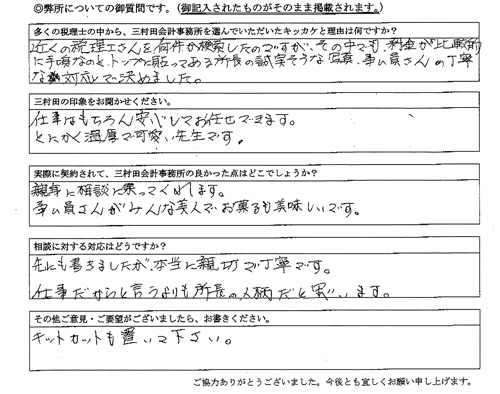 ◎弊所についての御質問です。(御記入されたものがそのまま掲載されます。)
多くの税理士の中から、三村田会計事務所を選んでいただいたキッカケと理由は何ですか?
近くの税理士さんを何件か検索したのですが、その中でも、料金が比較的
に手頃なのと、トップに貼ってある所長の誠実そうな写真、事務員さんの丁寧
な対応で決めました。
三村田の印象をお聞かせください。
仕事はもちろん安心してお任せできます。
とにかく温厚で可愛い先生です。
実際に契約されて、三村田会計事務所の良かった点はどこでしょうか?
親身に相談に乗ってくれます。
事ム員さんがみんな美人でお菓子も美味しいです。
相談に対する対応はどうですか?
先にも書きましたが、本当に親切で丁寧です。
仕事だからと言うよりも所長の人柄だと思います。
その他ご意見・ご要望がございましたら、お書きください。
キットカットも置いて下さい。
ご協力ありがとうございました。今後とも宜しくお願い申し上げます。